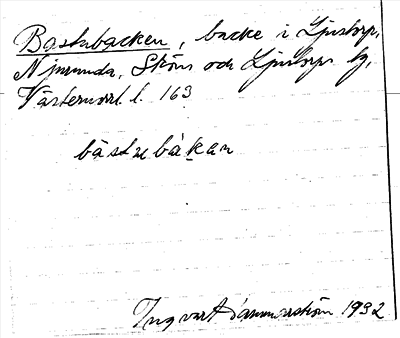 Bastubacken, backe i Ljustorp,
Njurunda, Sköns och Ljustorps tg,
Västernorrl. l. 163
bástubàkan
Ingvart Dammarström 1932